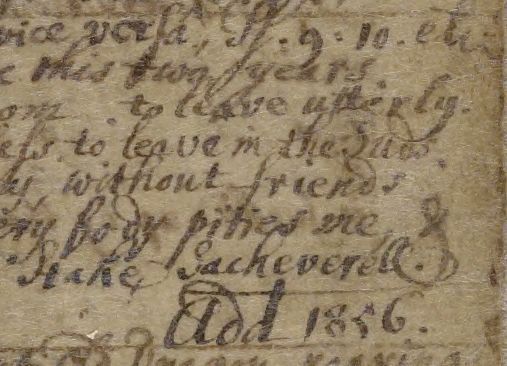 vice versa, Ps. 9. 10. etc
this two years
to leave utterly.
to leave in the
without friends
ery body pities me, &
Stake, Sacheverell.
Add 1856.